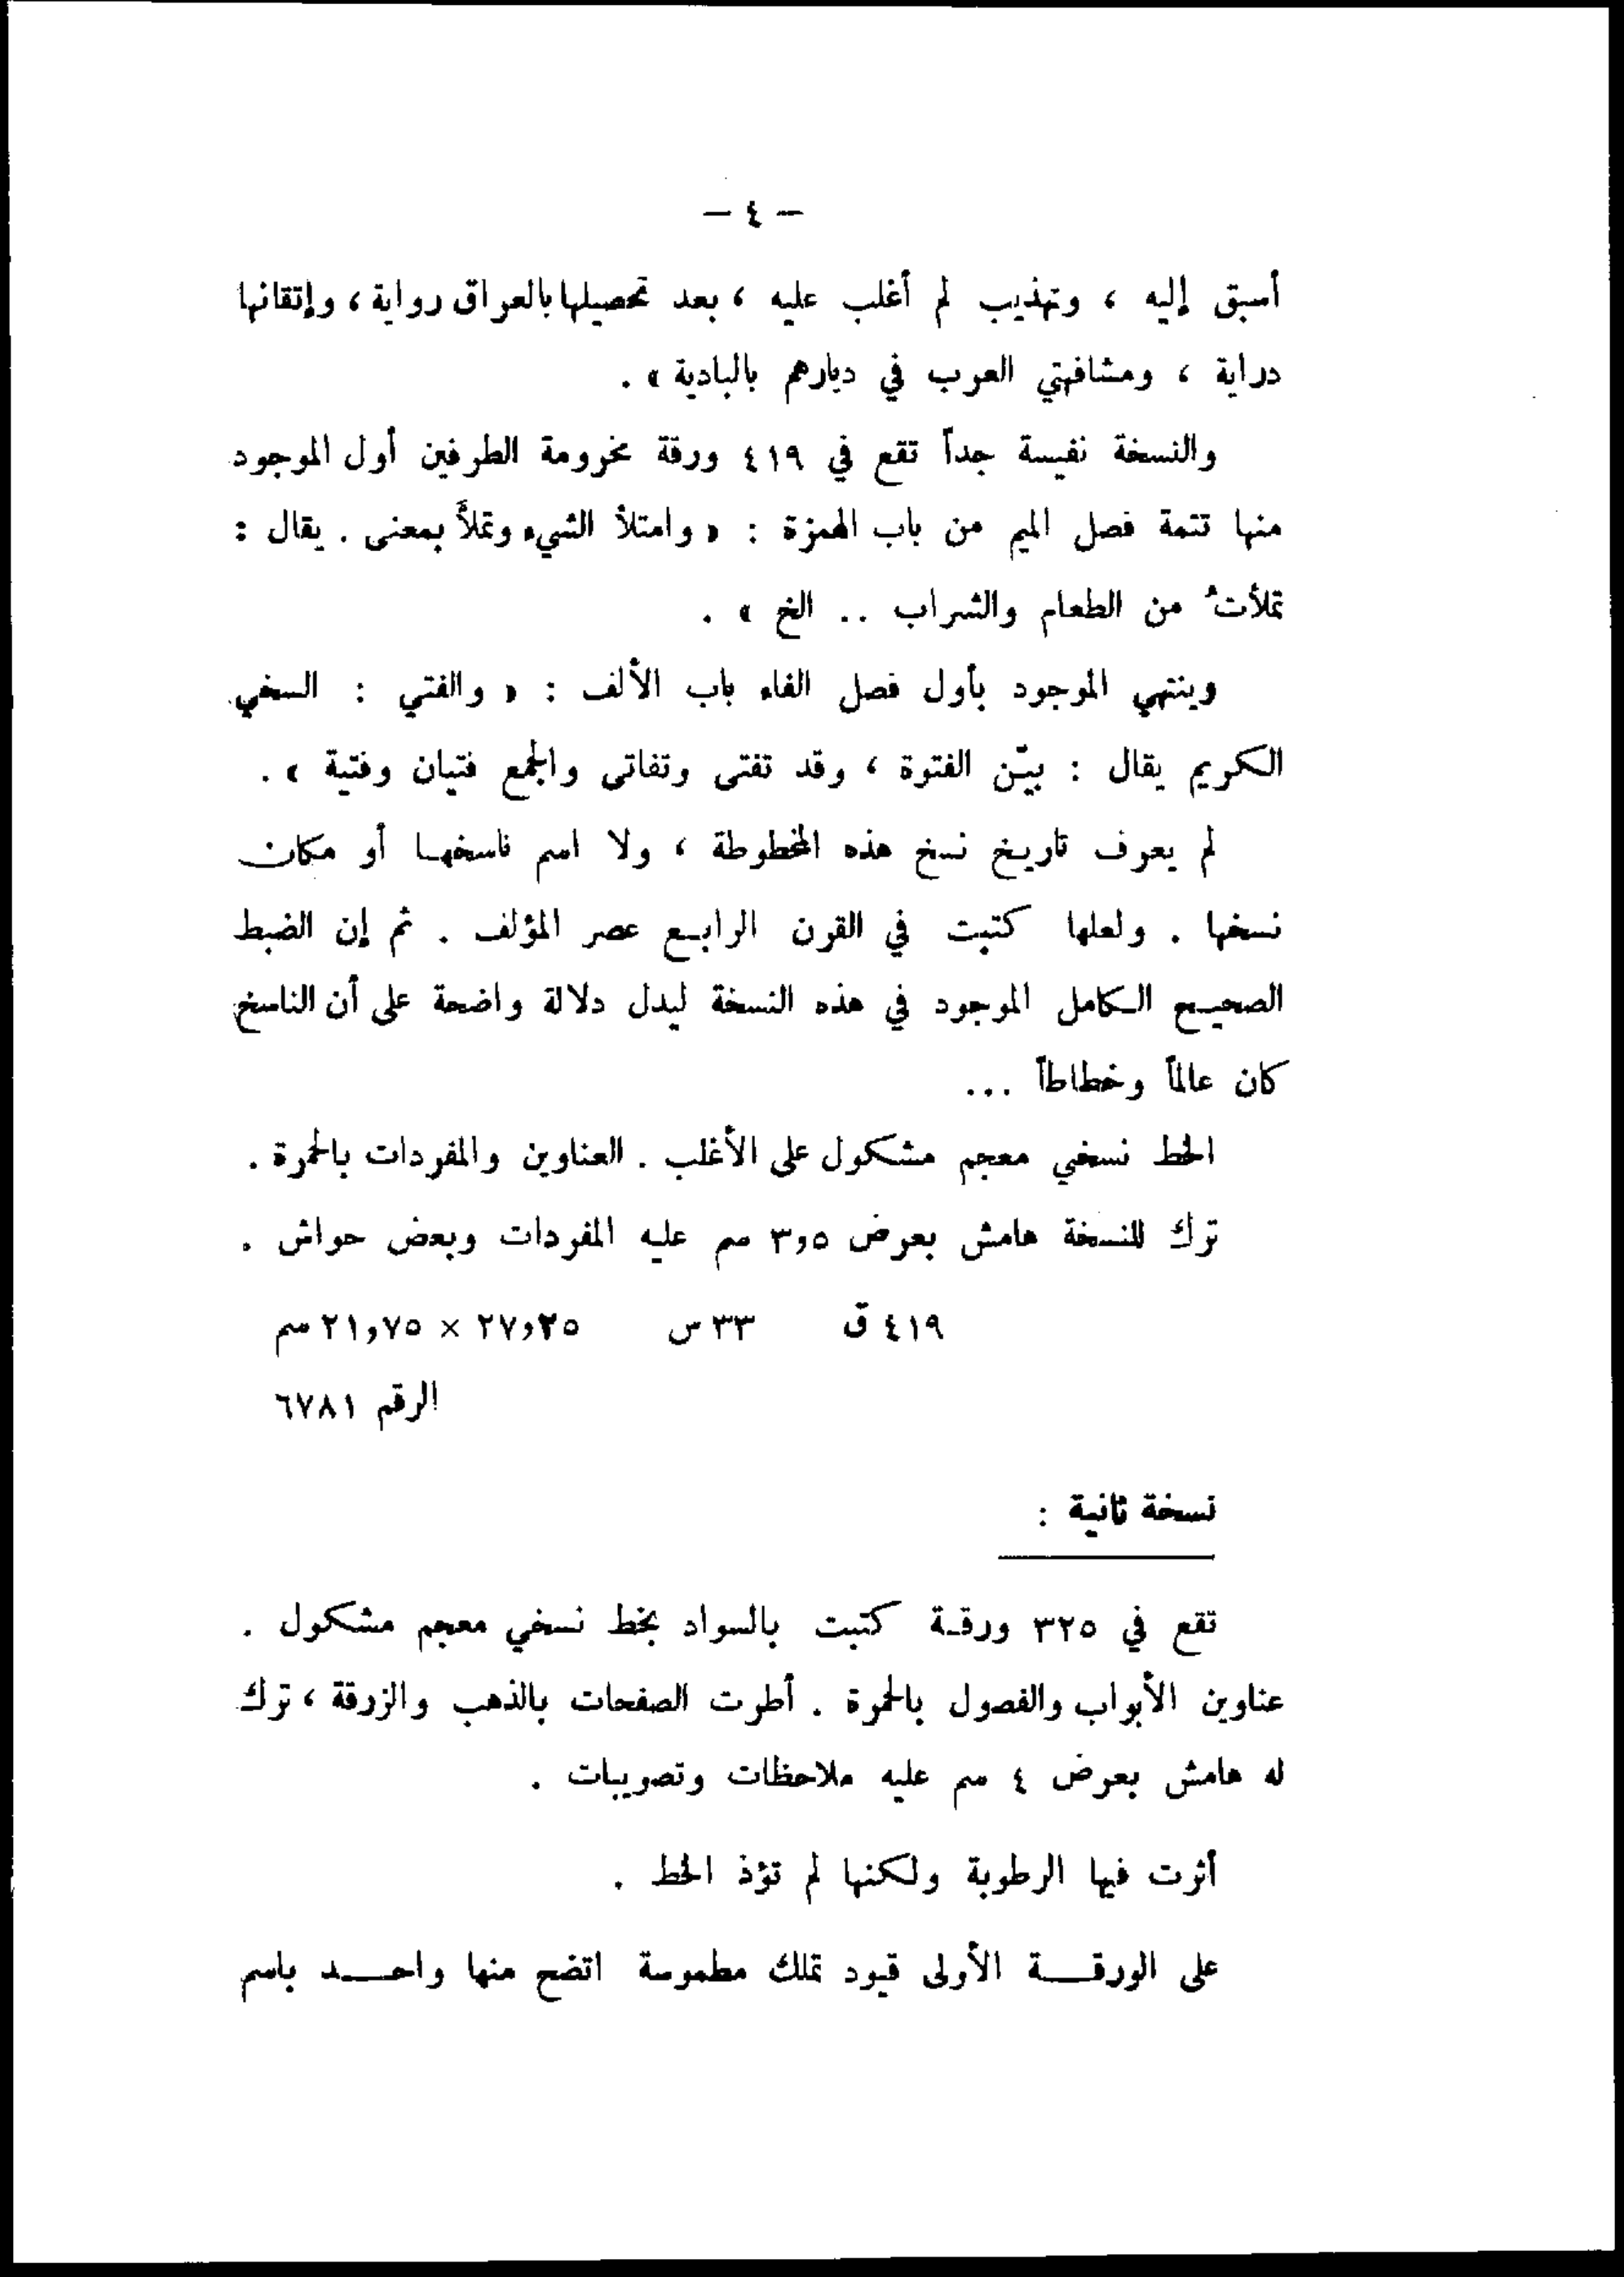 — ٤ —
أسبق إليه ، وتهذيب لم أغلب عليه ، بعد تحصيلها بالعراق رواية ، وإتقانها
دراية ، ومشافهتي العرب في ديارهم بالبادية » .
والنسخة نفيسة جداً تقع في ٤١٩ ورقة مخرومة الطرفين أول الموجود
منها تتمة فصل الميم من باب الهمزة : « وامتلأ الشيء وتملأَّ بمعنى . يقال :
تملأتُ من الطعام والشراب .. الخ » .
وينتهي الموجود بأول فصل الفاء باب الألف : « والفتي : السخي
الكريم يقال : بيّن الفتوة ، وقد تفتى وتفاتى والجمع فتيان وفتية » .
لم يعرف تاريخ نسخ هذه المخطوطة ، ولا اسم ناسخها أو مكان
نسخها . ولعلها كتبت في القرن الرابع عصر المؤلف . ثم إن الضبط
الصحيح الكامل الموجود في هذه النسخة ليدل دلالة واضحة على أن الناسخ
كان عالماً وخطاطاً ...
الخط نسخي معجم مشكول على الأغلب . العناوين والمفردات بالحمرة .
ترك للنسخة هامش بعرض ٣,٥ سم عليه المفردات وبعض حواش .
٤١٩ ق ٣٣ س ٢٧,٢٥ × ٢١,٧٥ سم
الرقم ٦٧٨١
نسخة ثانية :
تقع في ٣٢٥ ورقة كتبت بالسواد بخط نسخي معجم مشكول .
عناوين الأبواب والفصول بالحمرة . أطرت الصفحات بالذهب والزرقة ، ترك
له هامش بعرض ٤ سم عليه ملاحظات وتصويبات .
أثرت فيها الرطوبة ولكنها لم تؤذ الخط .
على الورقة الأولى قيود تملك مطموسة اتضح منها واحد باسم